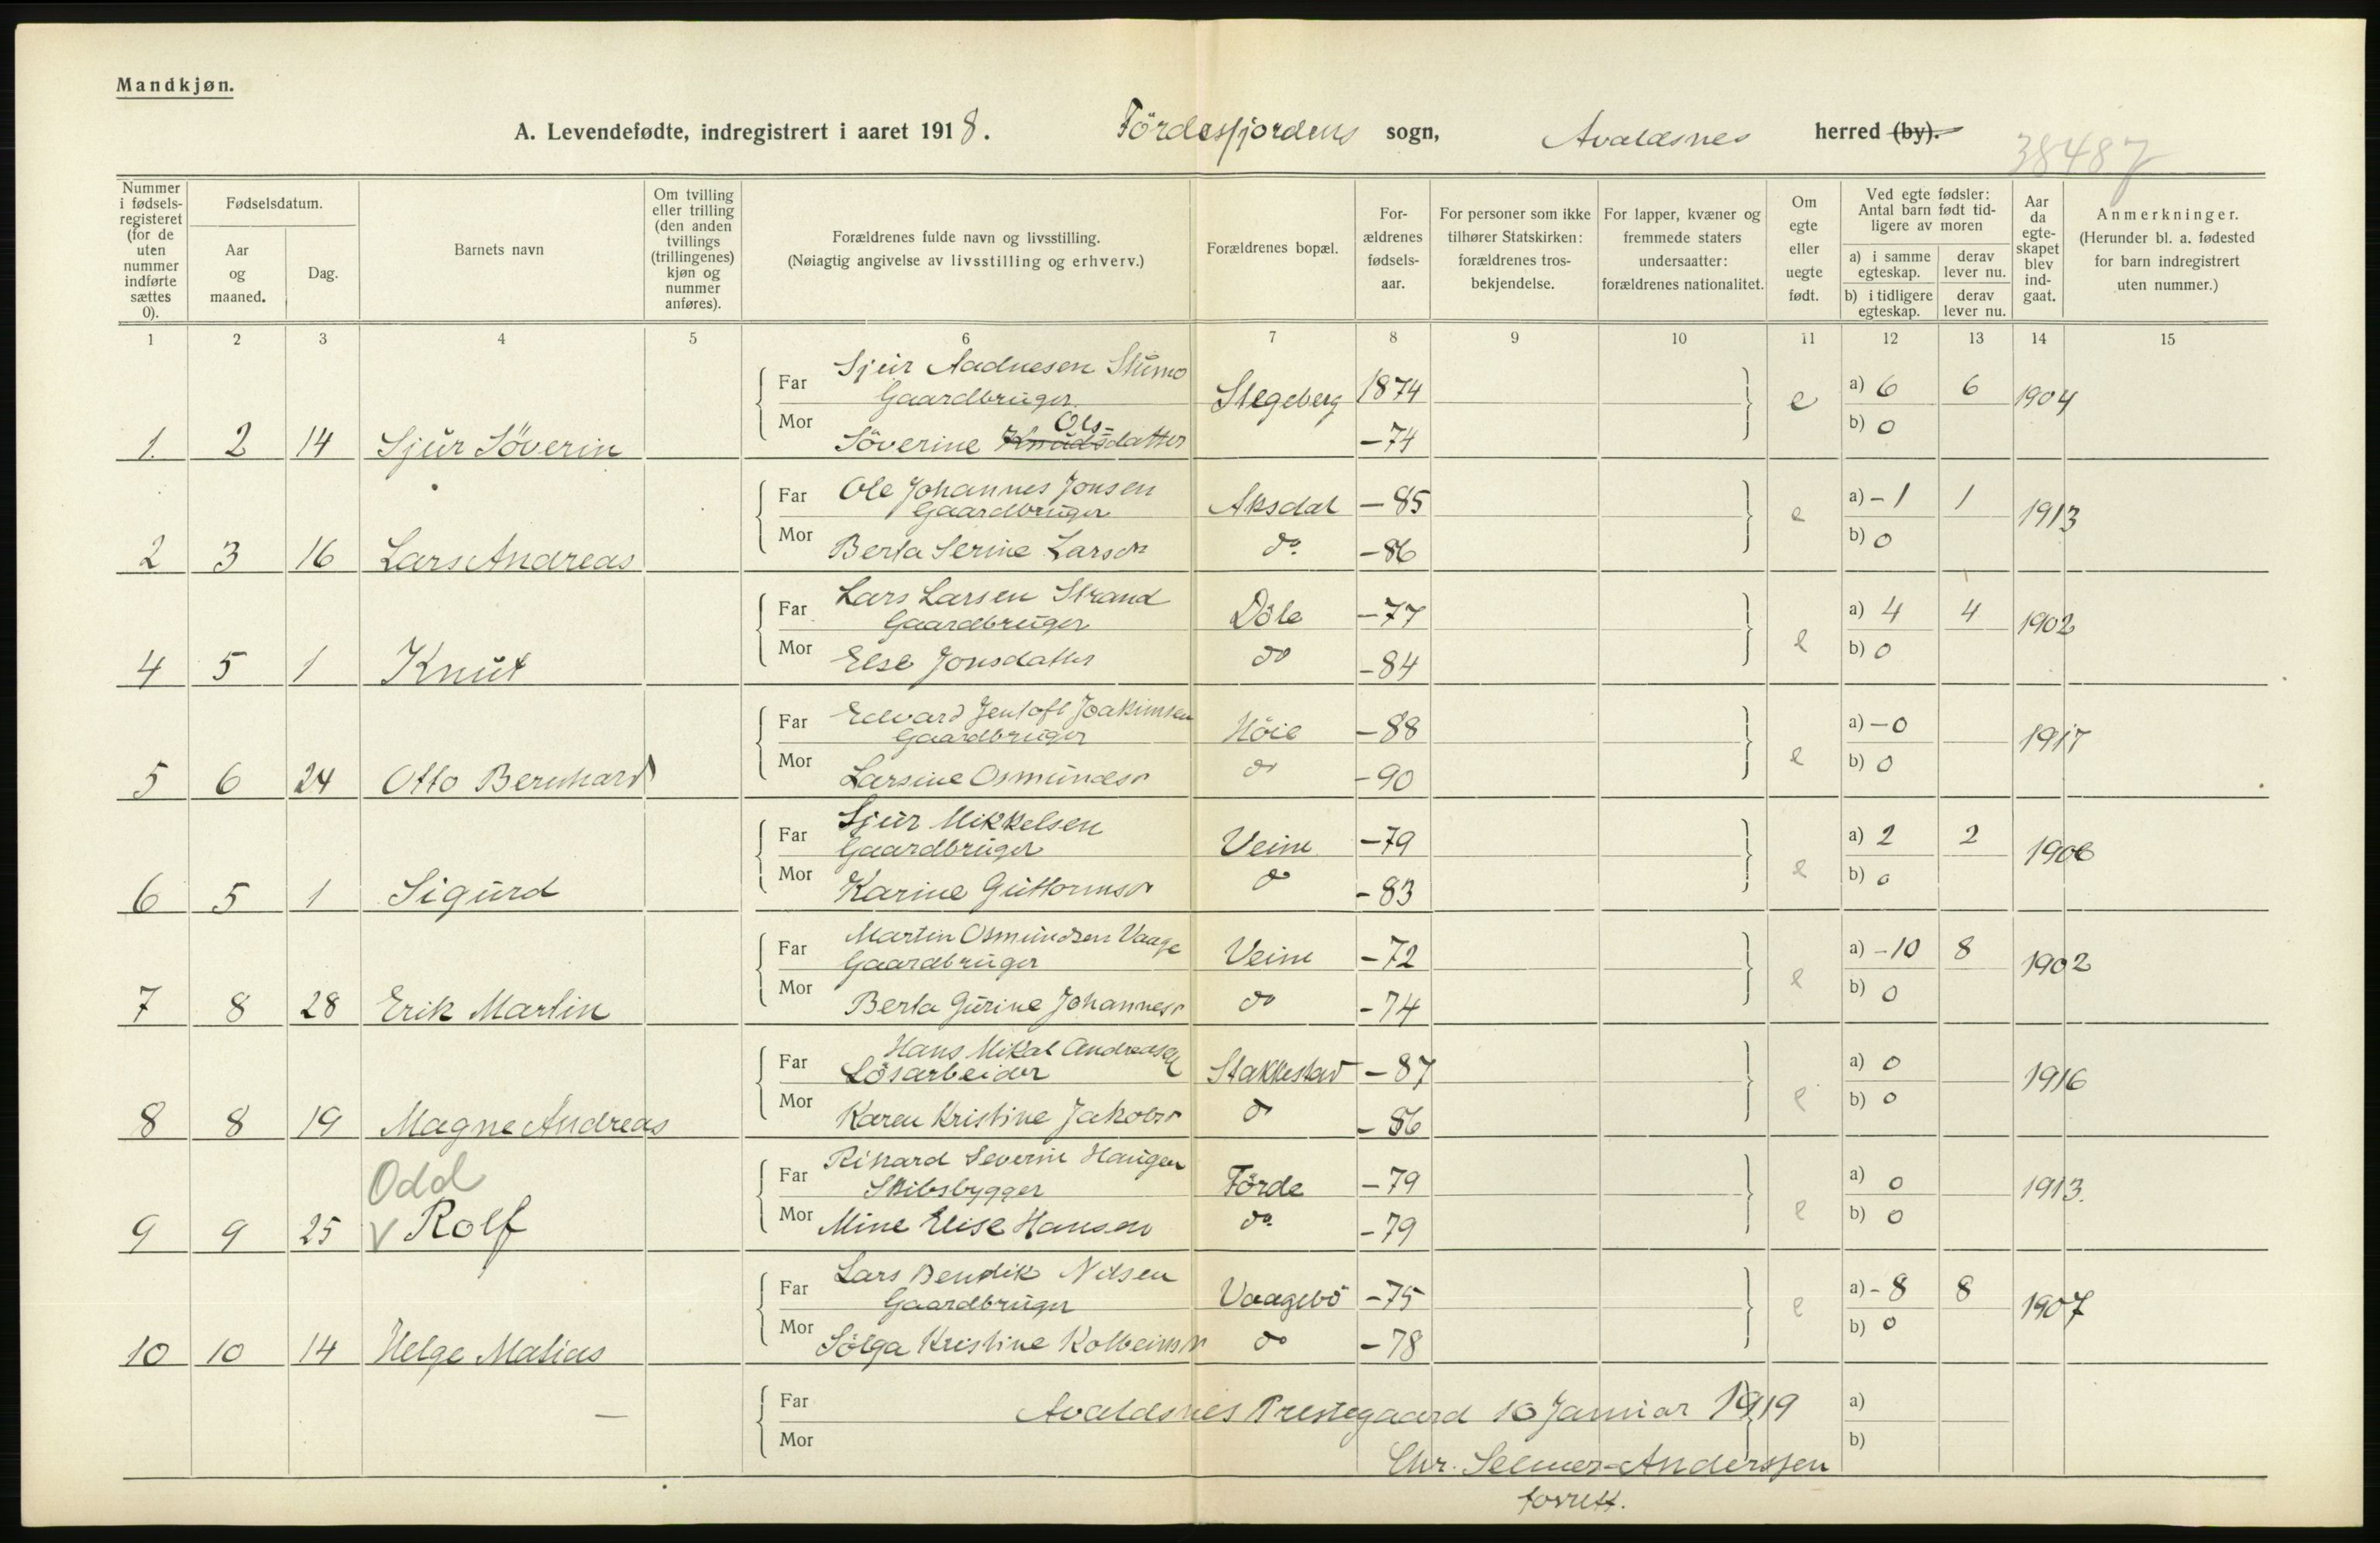 Mandkjøn.
A. Levendefødte, indregistrert i aaret 1918. Fördesfjordens sogn, Avaldsnes herred (by).
38487
Nummer i fødsels-registeret (for de uten nummer indførte sættes 0).
Fødselsdatum.
Aar og maaned.
Dag.
Barnets navn
Om tvilling eller trilling (den anden tvillings (trillingenes) kjøn og nummer anføres).
Forældrenes fulde navn og livsstilling.
(Nøiagtig angivelse av livsstilling og erhverv.)
Forældrenes bopæl.
For-ældrenes fødsels-aar.
For personer som ikke tilhører Statskirken: forældrenes tros-bekjendelse.
For lapper, kvæner og fremmede staters undersaatter: forældrenes nationalitet.
Om egte eller uegte født.
Ved egte fødsler: Antal barn født tid-ligere av moren
a) i samme egteskap.
derav lever nu.
b) i tidligere egteskap.
derav lever nu.
Aar da egte-skapet blev ind-gaat.
Anmerkninger.
(Herunder bl. a. fødested for barn indregistrert uten nummer.)
1 2 3 4 5 6 7 8 9 10 11 12 13 14 15
Far Sjur Aadnesen Stumo
Gaardbruger Stegeberg 1874 e a) 6 6 1904
Mor Ols-
1. 2 14 Sjur Söverin Söverine Knudsdatter -74 b) 0
Far Ole Johannes Jonsen
Gaardbruger Aksdal -85 e a) -1 1 1913
2 3 16 Lars Andreas Mor Berta Serine Larsdr do -86 b) 0
Far Lars Larsen Strand
Gaardbruger Döle -77 e a) 4 4 1902
4 5 1 Knut Mor Else Jonsdatter do -84 b) 0
Far Edvard Jentoft Joakimsen
Gaardbruger Höie -88 e a) -0 1917
5 6 24 Otto Bernhard Mor Larsine Osmundsdr do -90 b) 0
Far Sjur Mikkelsen
Gaardbruger Veine -79 e a) 2 2 1906
6 5 1 Sigurd Mor Karine Guttormsdr do -83 b) 0
Far Martin Osmundsen Vaage
Gaardbruger Veine -72 e a) -10 8 1902
7 8 28 Erik Martin Mor Berta Gurine Johannesdr do -74 b) 0
Far Hans Mikal Andreasen
Lösarbeider Stakkestad -87 e a) 0 1916
8 8 19 Magne Andreas Mor Karen Kristine Jakobsdr do -86 b) 0
Far Rikard Severin Haugen
Odd Skibsbygger Förde -79 e a) 0 1913.
9 9 25 V Rolf Mor Mine Elise Hansen do -79 b) 0
Far Lars Bendik Nilsen
Gaardbruger Vaagebö -75 e a) -8 8 1907
10 10 14 Helge Matias Mor Sölga Kristine Kolbeinsdr do -78 b) 0
Far Avaldsnes Prestegaard 10 Januar 1919 a)
Mor b)
Chr. Selmer-Anderssen
forrett.